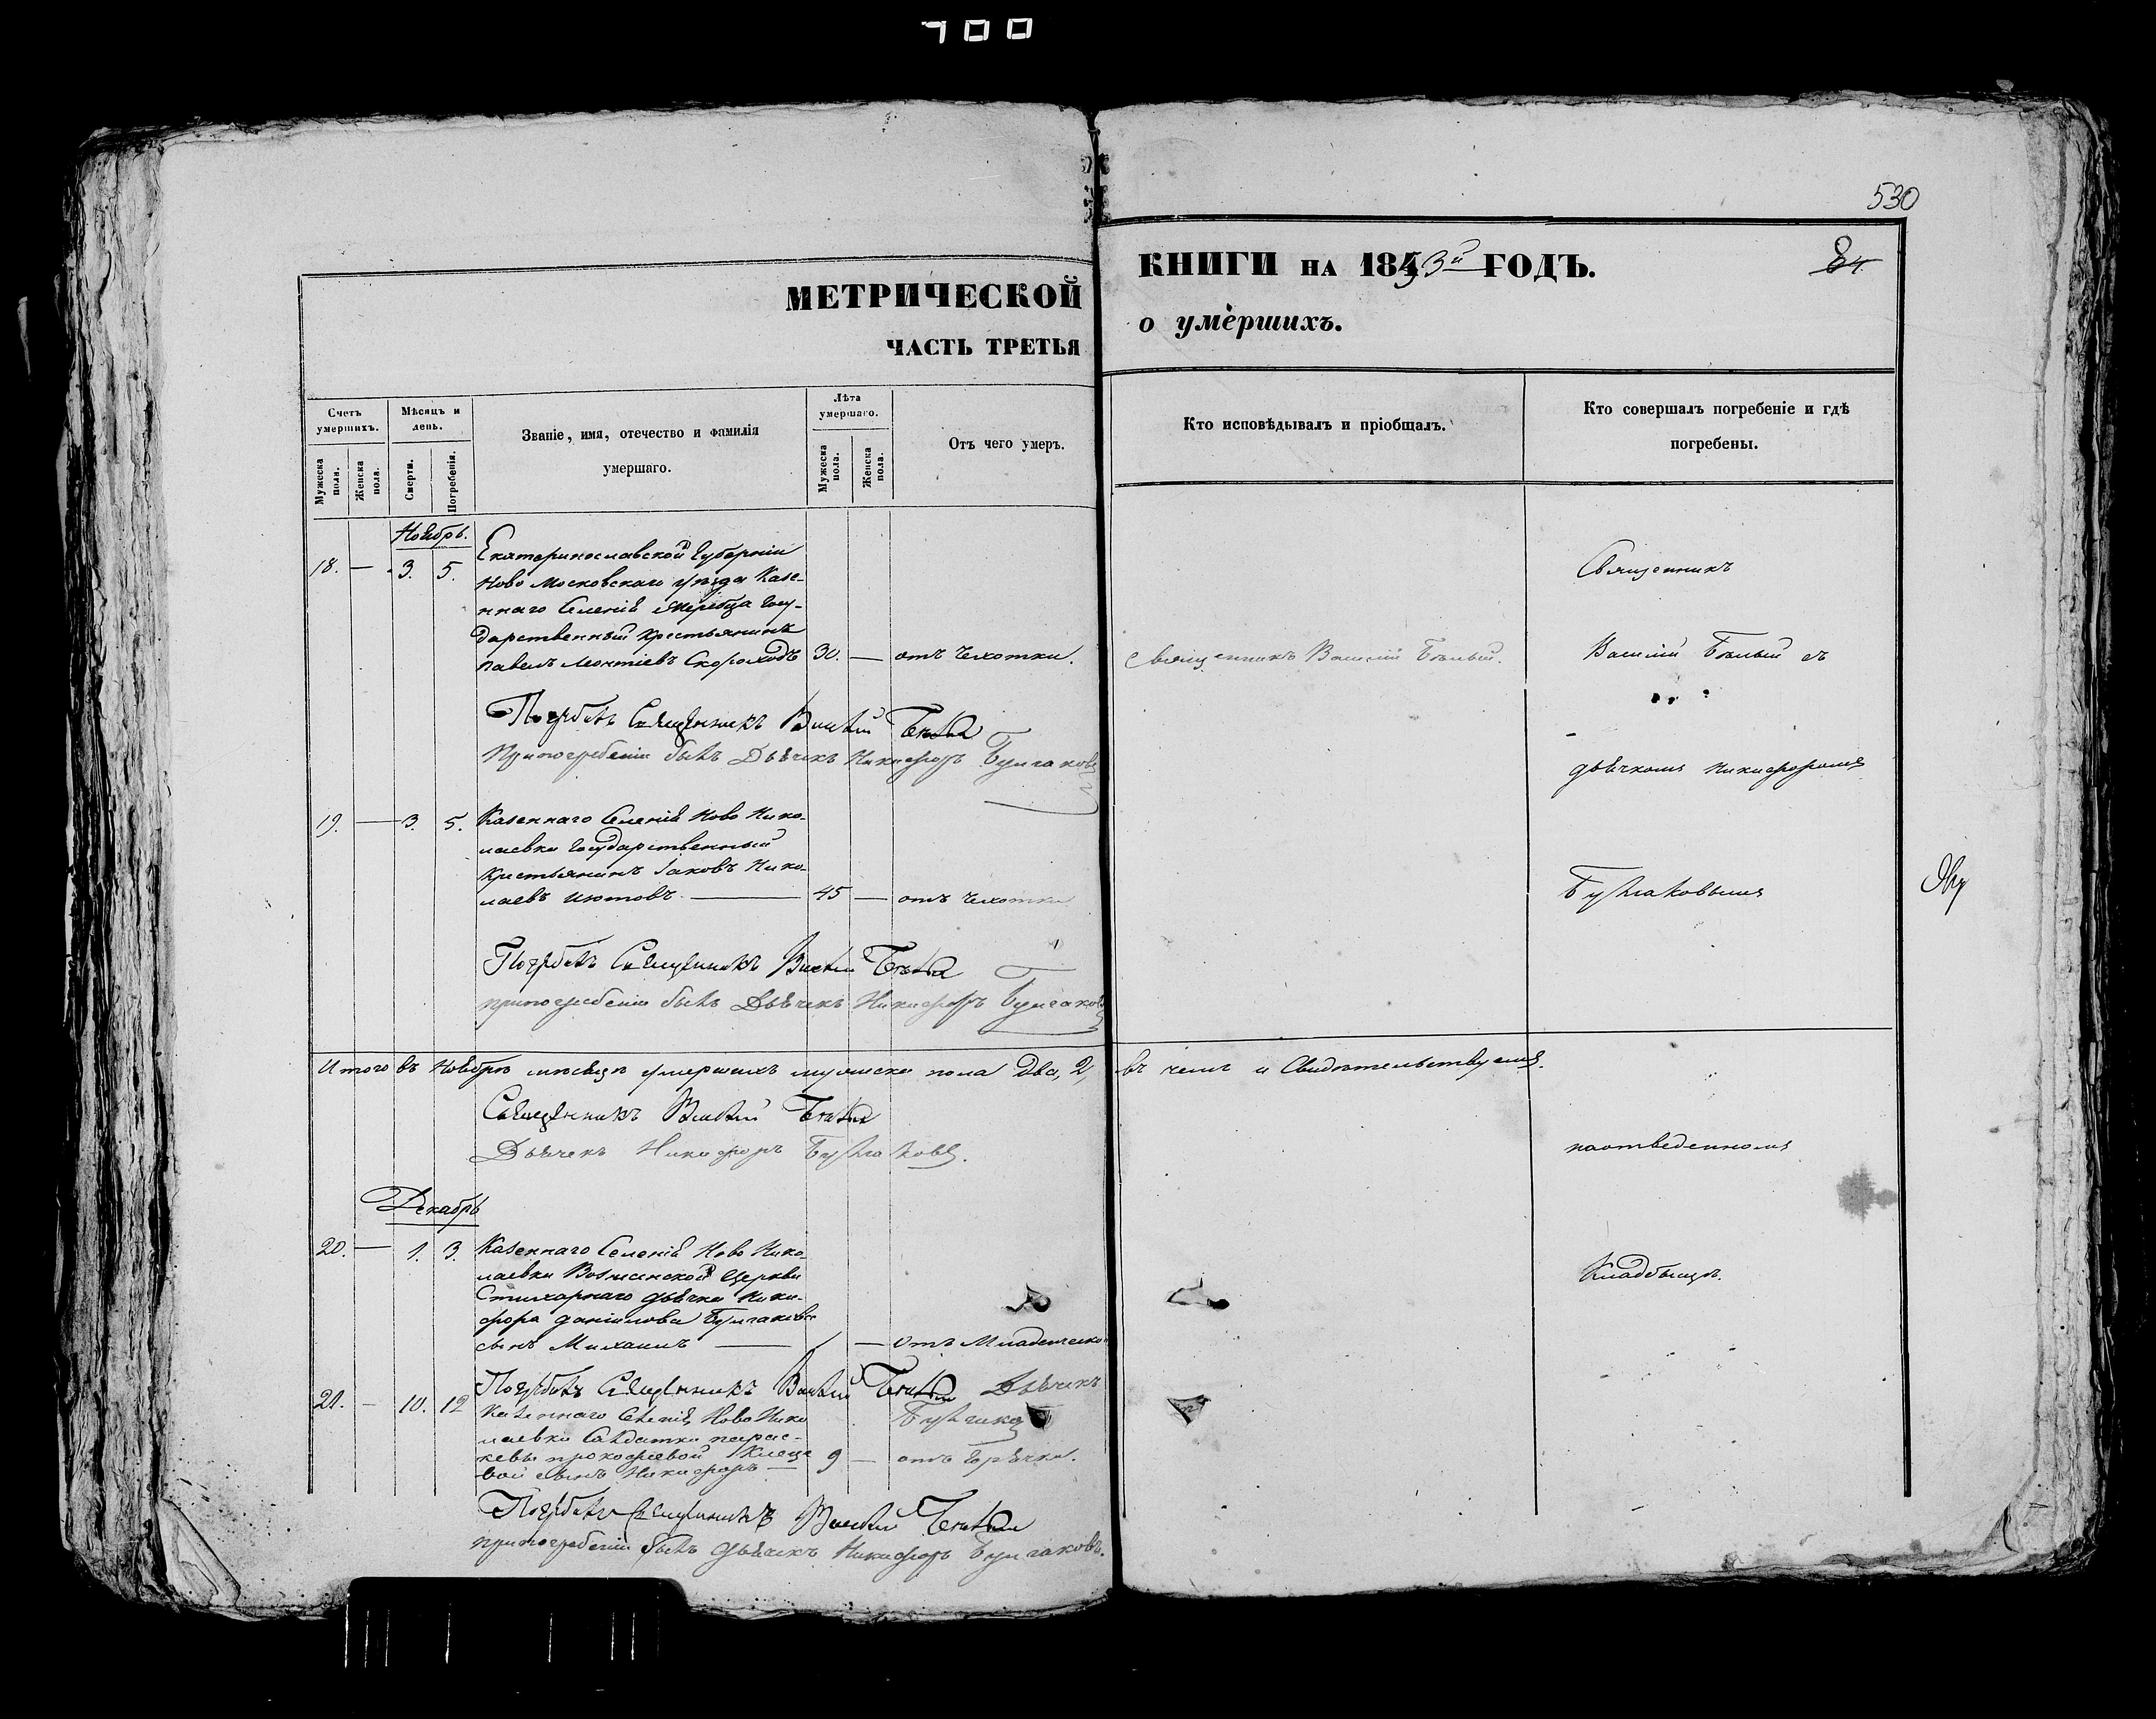 700
530
МЕТРИЧЕСКОЙ
ЧАСТЬ ТРЕТЬЯ
КНИГИ НА 1853й ГОДЪ.
84.
о умершихъ.
Счетъ умершихъ.
Мужеска пола.
Женска пола.
Мѣсяцъ и день.
Смерти.
Погребенія.
Званіе, имя, отечество и фамилія
умершаго.
Лѣта умершаго.
Мужеска пола.
Женска пола.
Отъ чего умеръ.
Кто исповѣдывалъ и пріобщалъ.
Кто совершалъ погребеніе и гдѣ
погребены.
Ноябрь.
18. — 3. 5. Екатеринославской Губерніи
Ново Московскаго уѣзда Казе-
ннаго Селенія Жеребца Госу-
дарственный крестьянинъ
Павелъ Леонтіевъ Скороходъ 30. — отъ Чехотки. Священникъ Василій Бѣлый.
Погребалъ Священникъ Василій Бѣлый
При погребеніи былъ Дьячекъ Никифоръ Булгаковъ
19. — 3. 5. Казеннаго Селенія Ново Нико-
лаевки Государственный
крестьянинъ Іаковъ Нико-
лаевъ Изотовъ — 45 — отъ Чехотки
Погребалъ Священникъ Василій Бѣлый
при погребеніи былъ Дьячекъ Никифоръ Булгаковъ
Итого въ Ноябрѣ мѣсяцѣ умершихъ мужеска пола Два, 2, въ чемъ и Свидѣтельствуемъ.
Священникъ Василій Бѣлый
Дьячекъ Никифоръ Булгаковъ.
Декабрь
20. — 1. 3. Казеннаго Селенія Ново Нико-
лаевки Церкви
Стихарнаго дьячка Ники-
фора Даніилова Булгакова
сынъ Михаилъ — — Отъ Младенческо
Погребалъ Священникъ Василій Бѣлый Дьячекъ
Булгаковъ
21. — 10. 12 Казеннаго Селенія Ново Нико
лаевки Салдатки парас-
кевы прокофіевой
вой сынъ Никифоръ — 9 — отъ Горячки.
Погребалъ Священникъ Василій Бѣлый
при погребеніи былъ дьячекъ Никифоръ Булгаковъ.
Священникъ
Василій Бѣлый съ
дьячкомъ Никифоромъ
Булгаковымъ
на отведенномъ
Кладбищѣ.